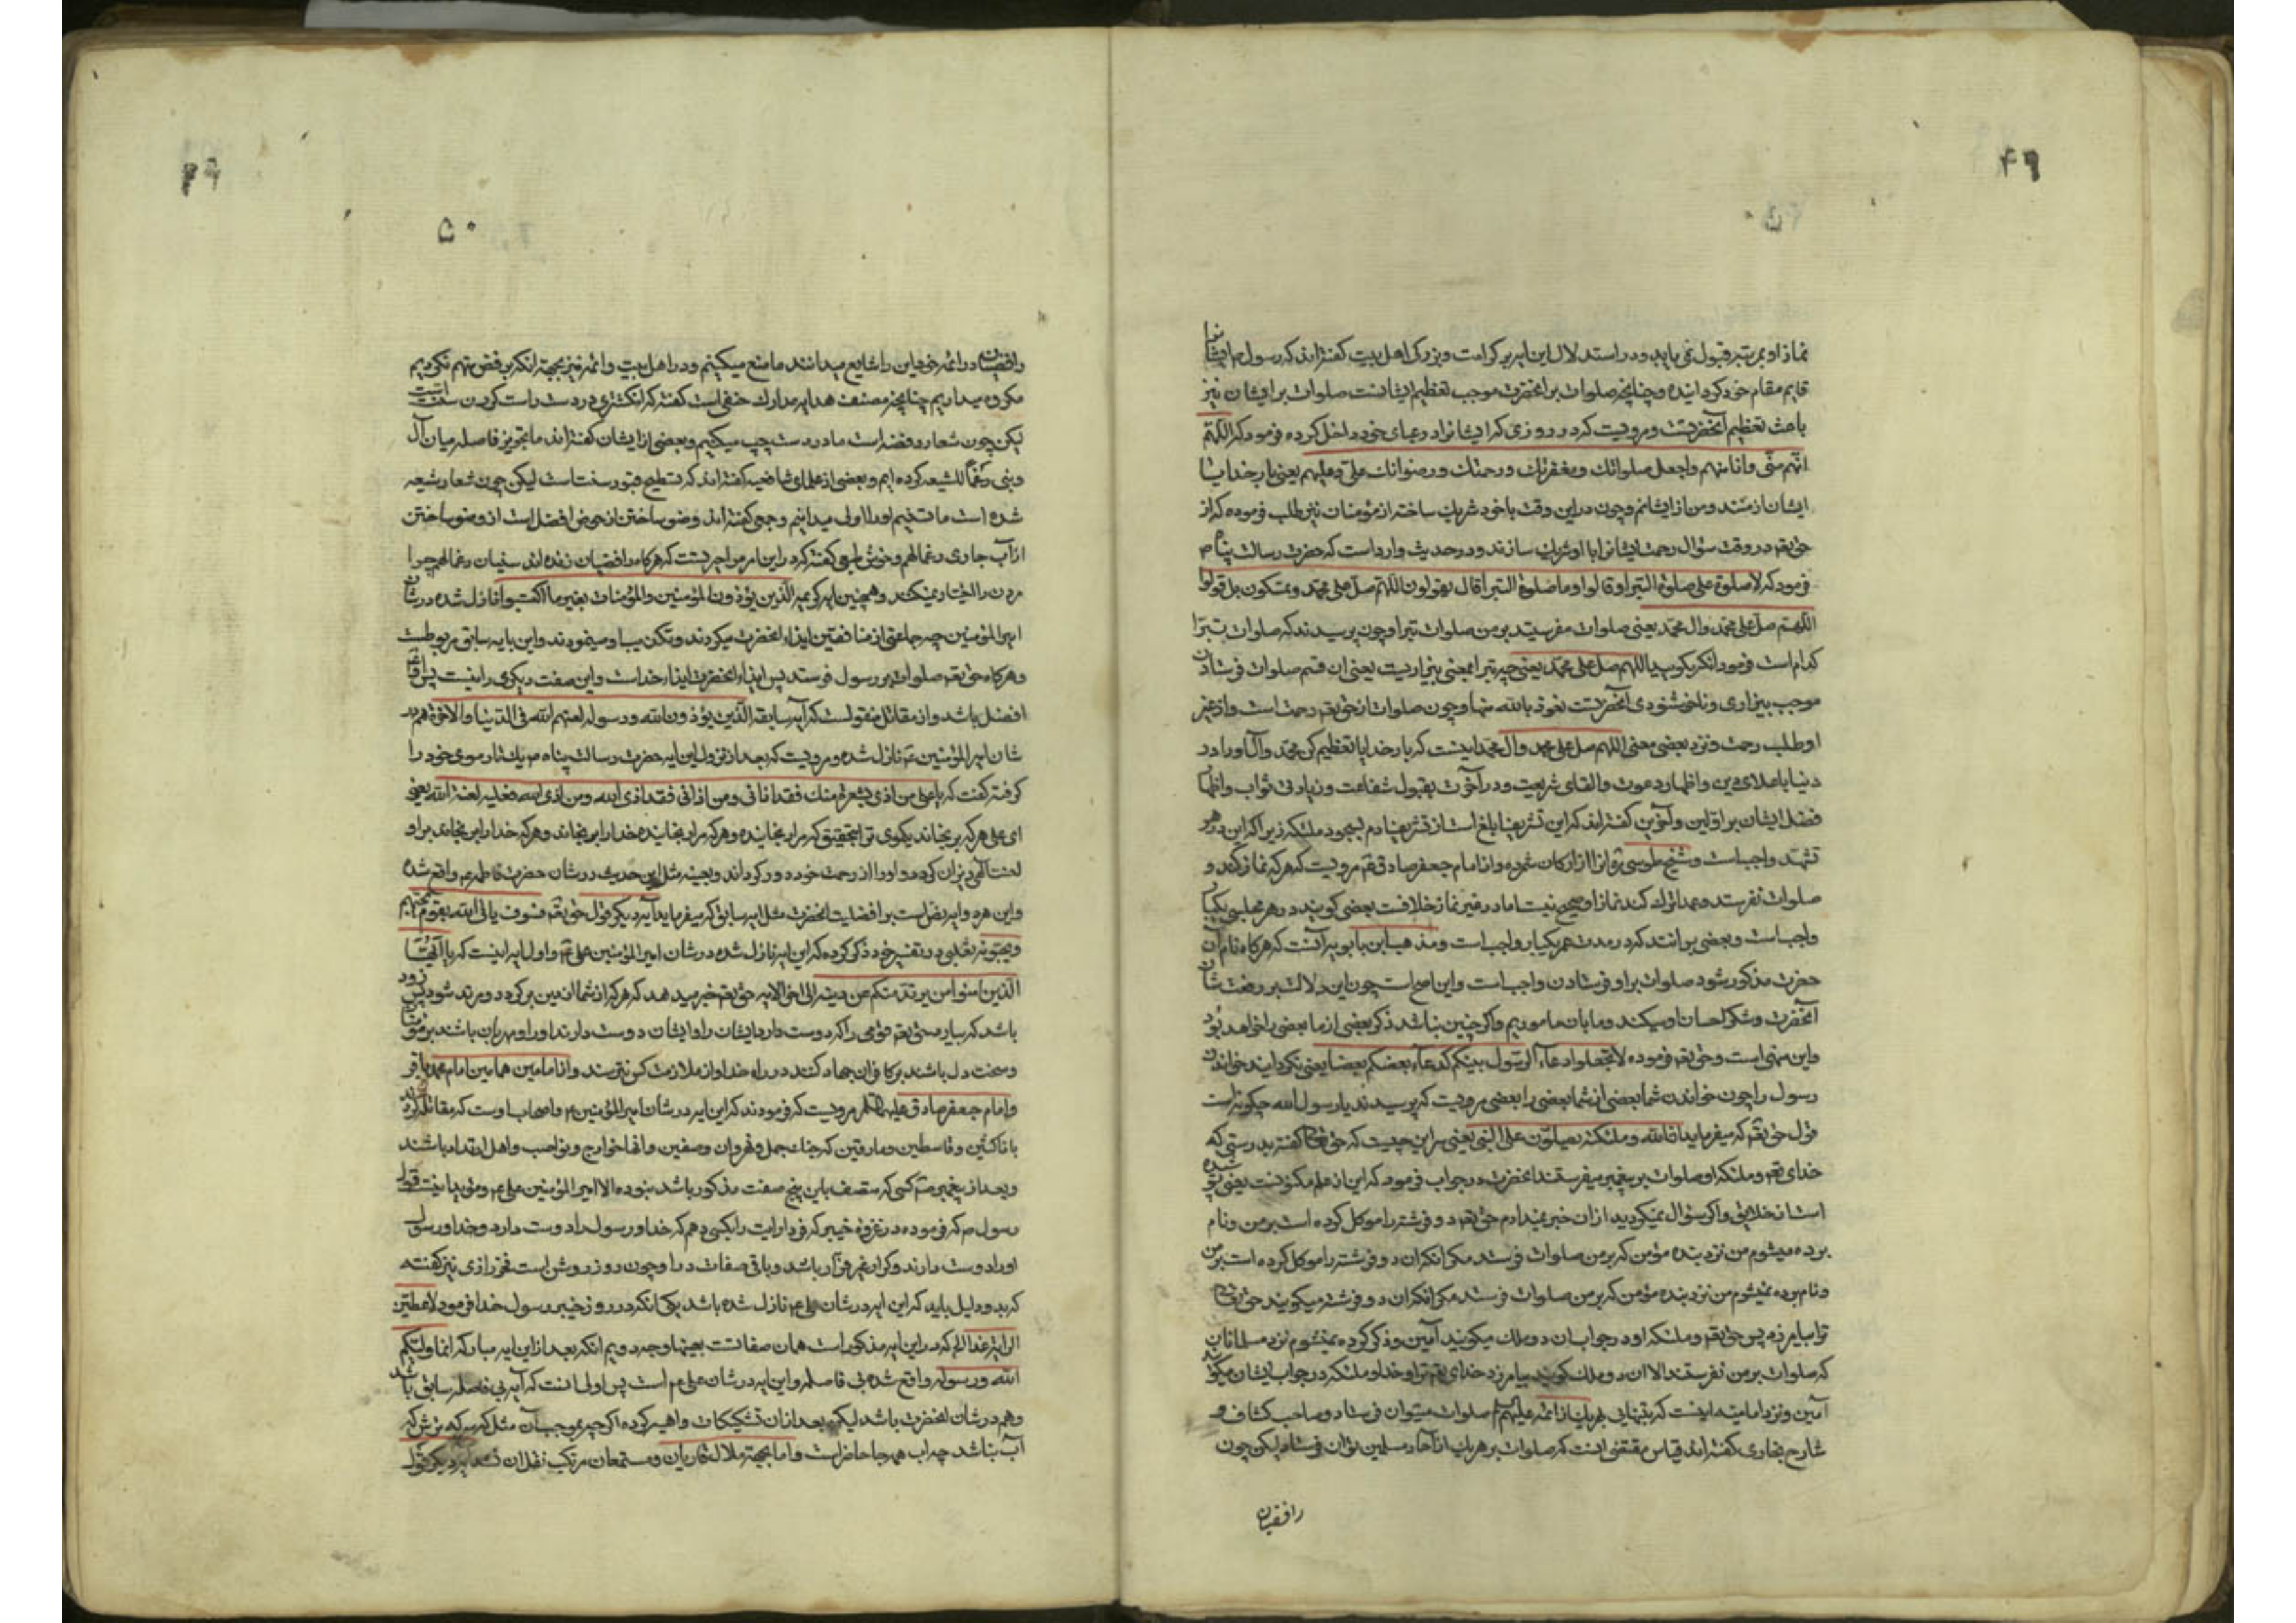 ۴۹
نماز او بمرتبه قبول نمی یابد و در استدلال این ایه بر کرامت و بزرکی اهل بیت کفته‌اند که رسول م ایشانرا
قایم مقام خود کردانیده و چنانچه صلوات بر انحضرت موجب تعظیم ایشانست صلوات بر ایشان نیز
باعث تعظیم آنحضرتست و مرویست که در روزی که ایشانرا در عبای خود داخل کرده فرمود که اللهم
انهم منی وانا منهم واجعل صلواتك ومغفرتك ورحمتك ورضوانك علی وعلیهم یعنی بار خدایا
ایشان از منند و من از ایشانم و چون در این وقت با خود شریك ساخته از مؤمنان نیز طلب فرموده که از
حق تع در وقت سؤال رحمت ایشانرا با او شریك سازند و در حدیث وارد است که حضرت رسالت پناه م
فرمود که لا صلوة علی صلوة التبرا و قالوا وما صلوة التبرا قال یقولون اللهم صل علی محمد وتمسکون بل قولوا
اللهم صل علی محمد وال محمد یعنی صلوات مفرستید بر من صلوات تبرا و چون پرسیدند که صلوات تبرا
کدام است فرمود انکه بکویید اللهم صل علی محمد یعنی چه تبرا بمعنی بیزاریست یعنی ان قسم صلوات فرستادن
موجب بیزاری و ناخوشنودی آنحضرتست نعوذ بالله منها و چون صلوات از حق تع رحمت است و از غیر
او طلب رحمت و نزد بعضی معنی اللهم صل علی محمد وال محمد اینست که بار خدایا تعظیم کن محمد و ال او را در
دنیا باعلای دین و اظهار دعوت و القای شریعت و در آخرت بقبول شفاعت و زیادتی ثواب و اظهار
فضل ایشان بر اولین و آخرین کفته‌اند که این تشریف ابلغ است از تشریف ادم بسجود ملئکه زیرا که این در هر
تشهد واجب است و شیخ طوسی ره انرا از ارکان شمرده و از امام جعفر صادق ع مرویست که هر که نماز کند و
صلوات نفرستد و عمدا ترك کند نماز او صحیح نیست اما در غیر نماز خلافست بعضی کویند در هر مجلسی یکبار
واجب است و بعضی بر انند که در مدت عمر یکبار واجب است و مذهب ابن بابویه آنست که هرکاه نام آن
حضرت مذکور شود صلوات بر او فرستادن واجب است و این اصح است چون این دلالت بر رفعت شان
آنحضرت و شکر احسان او میکند و ما بان ماموریم و اکر چنین نباشد ذکر بعضی از ما بعضی را خواهد بود
و این منهی است و حق تع فرموده لا تجعلوا دعاء الرسول بینکم کدعاء بعضکم بعضا یعنی نکردانید خواندن
رسول را چون خواندن شما بعضی از شما بعضی را بعضی مرویست که پرسیدند یا رسول الله چکونه است
قول حق تع که میفرماید ان الله وملئکته یصلون علی النبی یعنی سر این چیست که حق تع کفته بدرستی که
خدای تع و ملئکه او صلوات بر پیغمبر میفرستند انحضرت در جواب فرمود که این از علم مکنونست یعنی پوشیده
است از خلایق و اکر سؤال نمیکردید از ان خبر نمیدادم حق تع دو فرشته را موکل کرده است بر من و نام
برده میشوم من نزد بنده مؤمن که بر من صلوات فرستد مکر انکه ان دو فرشته را موکل کرده است بر من
و نام برده نمیشوم من نزد بنده مؤمن که بر من صلوات فرستد مکر انکه ان دو فرشته میکویند حق تع
ترا بیامرزد پس حق تع و ملئکه او در جواب ان دو ملك میکویند آمین و ذکر کرده نمیشوم نزد مسلمانان
که صلوات بر من نفرستند الا ان دو ملك کویند بیامرزد خدای تع ترا و خدا و ملئکه در جواب ایشان میکویند
آمین و نزد امامیه اینست که بتنهایی بهر یك از ائمه علیهم صلوات میتوان فرستاد و صاحب کشاف و
شارح بخاری کفته‌اند قیاس مقتضی انست که صلوات بر هر یك از آحاد مسلمین توان فرستاد لیکن چون
رافضیان
۵۰
رافضیان در ائمه خود این را شایع میدانند ما منع میکنیم و در اهل بیت و ائمه نیز بجهة انکه برفض متهم نکردیم
مکروه میداریم چنانچه مصنف هدایه مدارك حنفی است کفته که انکشتری در دست راست کردن سنت است
لیکن چون شعار روفضه است ما در دست چپ میکنیم و بعضی از ایشان کفته‌اند ما تجویز فاصله میان آل
و نبی رغما للشیعه کرده ایم و بعضی از علمای شافعیه کفته‌اند که تسطیح قبور سنت است لیکن چون شعار شیعه
شده است ما تسنیم او را اولی میدانیم و جمعی کفته‌اند وضو ساختن از حوض افضل است از وضو ساختن
از آب جاری رغما لهم و خوش طبعی کفته که در این امر مواجریست که هرکاه رافضیان زنده اند سنیان رغما لهم چرا
مردن را اختیار نمیکنند و همچنین ایه کریمه الذین یؤذون المؤمنین والمؤمنات بغیر ما اکتسبوا نازل شده در شان
امیر المؤمنین چه جماعتی از منافقین ایذاء انحضرت میکردند و تکذیب او مینمودند و این بایه سابق مربوطست
و هرکاه حق تع صلوات بر رسول فرستد پس ایذاء انحضرت ایذاء خداست و این صفت دیکری را نیست پس او
افضل باشد و از مقاتل منقولست که آیه سابقه الذین یؤذون الله ورسوله لعنهم الله فی الدنیا والاخرة هم در
شان امیر المؤمنین ع نازل شده و مرویست که بعد از نزول این ایه حضرت رسالت پناه م یك تار موی خود را
کرفته کفت که یا علی من اذی شعرة منك فقد اذانی ومن اذانی فقد اذی الله ومن اذی الله فعلیه لعنة الله یعنی
ای علی هر که برنجاند یکموی ترا بتحقیق که مرا رنجانیده و هر که مرا رنجانیده خدا را برنجاند و هر که خدا را برنجاند بر او
لعنت الهی و او را از رحمت خود دور کرداند و بعینه مثل این حدیث در شان حضرت فاطمه ع واقع شده
و این هر دو ایه نص است بر افضلیت انحضرت مثل ایه سابق که میفرماید آیه دیکر قول حق تع فسوف یأتی الله بقوم یحبهم
ویحبونه ثعلبی در تفسیر خود ذکر کرده که این ایه نازل شده در شان امیر المؤمنین علی ع و اول ایه اینست که یا ایها
الذین امنوا من یرتد منکم عن دینه الی اخر الایه حق تع خبر میدهد که هر که از شما از دین برکردد و مرتد شود پس زود
باشد که بیارد حق تع قومی را که دوست دارد ایشان را و ایشان دوست دارند او را و مهربان باشند بر مؤمنان
و سخت دل باشند بر کافران جهاد کنند در راه خدا و از ملامت کس نترسند و از امامین همامین امام محمد باقر
و امام جعفر صادق علیهما السلام مرویست که فرمودند که این ایه در شان امیر المؤمنین ع و اصحاب اوست که مقاتله کردند
با ناکثین و قاسطین و مارقین که جنك جمل و نهروان و صفین و انها خوارج و نواصب و اهل ارتداد باشند
و بعد از پیغمبر م کسی که متصف باین پنج صفت مذکور باشد نبوده الا امیر المؤمنین علی ع و مؤید اینست قول
رسول م که فرموده در غزوه خیبر که فردا رایت را بکسی دهم که خدا و رسول را دوست دارد و خدا و رسول
او را دوست دارند و کرار غیر فرار باشد و باقی صفات در او چون روز روشن است فخر رازی نیز کفته
که بدو دلیل باید که این ایه در شان علی ع نازل شده باشد یکی انکه در روز خیبر رسول خدا فرمود لاعطین
الرایة غدا الخ که در این ایه مذکور است همان صفاتست بعینها وجه دویم انکه بعد از این ایه مبارکه انما ولیکم
الله ورسوله واقع شده بی فاصله و این ایه در شان علی ع است پس اولی انست که آیه بی فاصله سابق باشد
و هم در شان انحضرت باشد لیکن بعد از ان تشکیکات واهیه کرده اکرچه بموجب آن مثل که سرکه نه ترش که
آب نباشد چه اب همه جا حاضر است و اما بجهة ملال قاریان و مستمعان مرتکب نقل ان نشد ایه دیکر قول